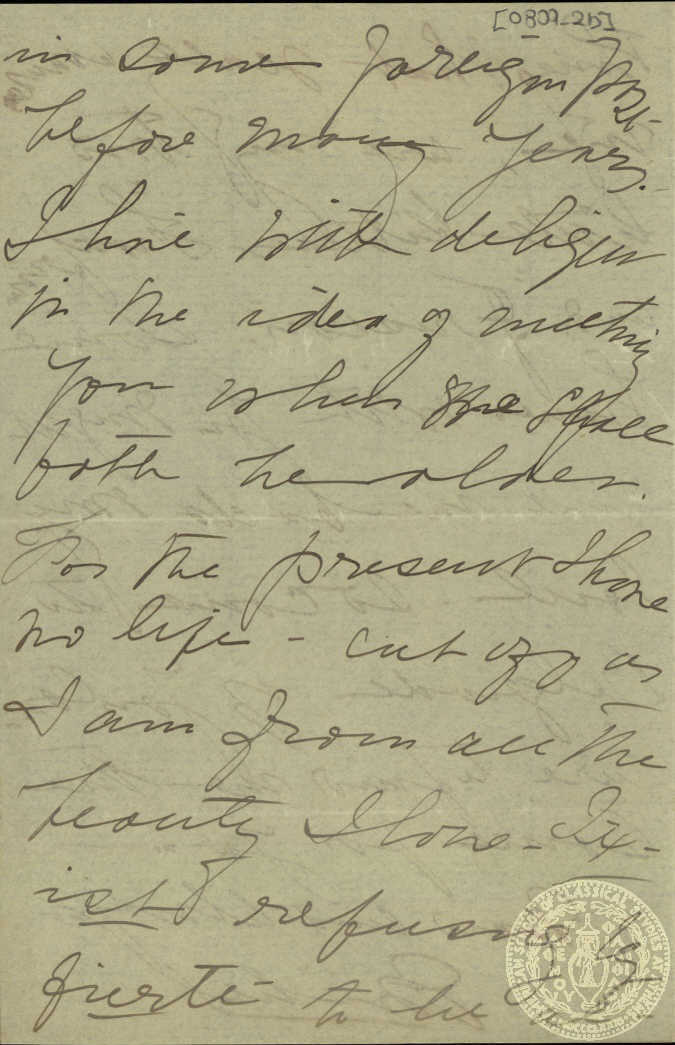 [0809-2b]
in some foreign Post
before many years.
I live with delight
in the idea of meeting
you when we shall
both be older.
For the present I have
no life - cut off as
I am from all the
beauty I love - Ex-
ist refusing by
fierté to be